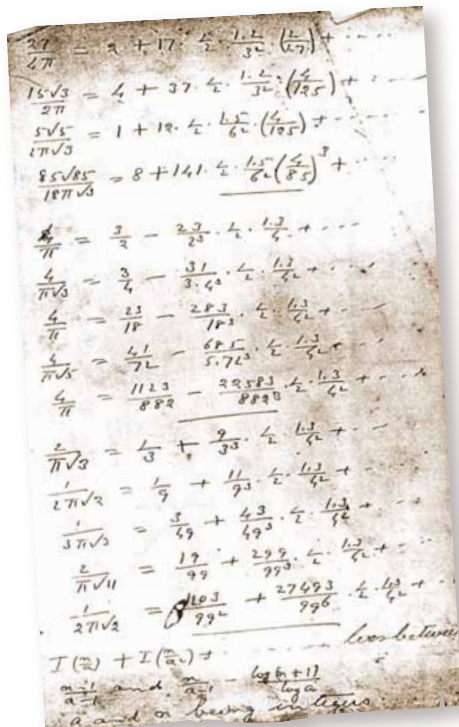 27/4π = 2 + 17 · 1/2 · 1·2/3² · (2/27) + ····
15√3/2π = 4 + 37 · 1/2 · 1·2/3² · (4/125) + ····
5√5/2π√3 = 1 + 12 · 1/2 · 1·5/6² · (4/125) + ····
85√85/18π√3 = 8 + 141 · 1/2 · 1·5/6² (4/85)³ + ···
4/π = 3/2 − 23/2³ · 1/2 · 1·3/4² + ····
4/π√3 = 3/4 − 31/3·4³ · 1/2 · 1·3/4² + ····
4/π = 23/18 − 283/18³ · 1/2 · 1·3/4² + ····
4/π√5 = 41/72 − 685/5·72³ · 1/2 · 1·3/4² + ····
4/π = 1123/882 − 22583/882³ · 1/2 · 1·3/4² + ····
2/π√3 = 1/3 + 9/3³ · 1/2 · 1·3/4² + ····
1/2π√2 = 1/9 + 11/9³ · 1/2 · 1·3/4² + ····
1/3π√3 = 3/49 + 43/49³ · 1/2 · 1·3/4² + ····
2/π√11 = 19/99 + 299/99³ · 1/2 · 1·3/4² + ····
1/2π√2 = 1103/99² + 27493/99⁶ · 1/2 · 1·3/4² + ···
I(n/a) + I(n/a²) + ···· lies between
n−1/a−1 and n/a−1 − log(n+1)/log a
a and n being integers.